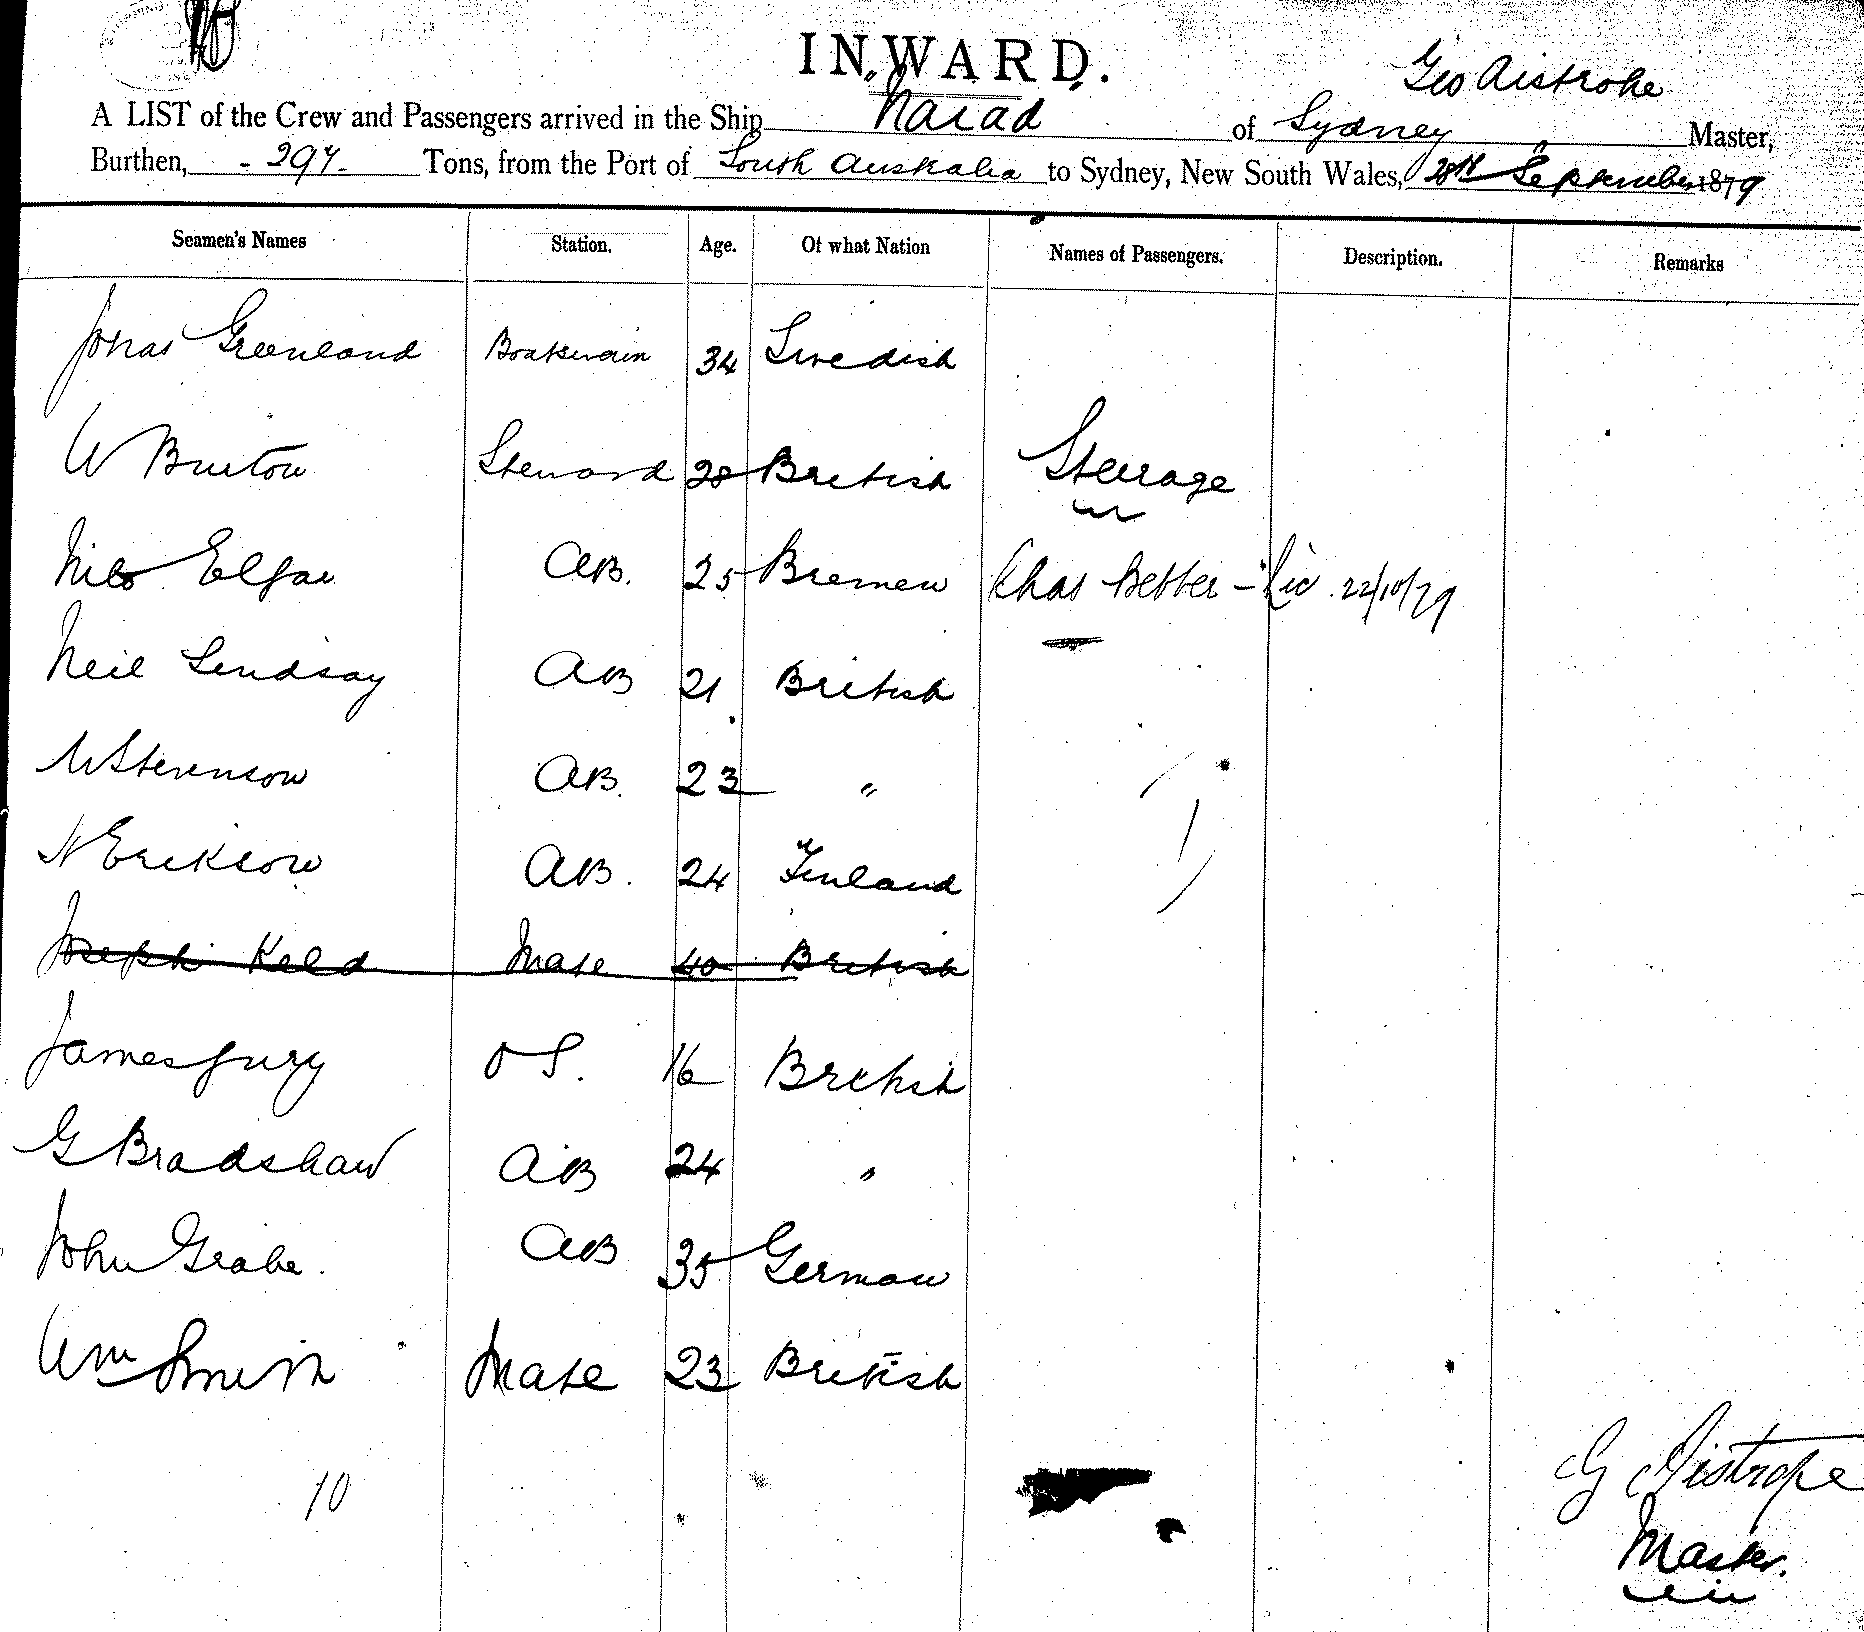 INWARD.
Geo Aistrope
A LIST of the Crew and Passengers arrived in the Ship "Naiad" of Sydney Master,
Burthen, - 297 - Tons, from the Port of South Australia to Sydney, New South Wales, 28th September 1879
Seamen's Names Station. Age. Of what Nation Names of Passengers. Description. Remarks
Jonas Greenland Boatswain 34 Swedish
W Burton Steward 28 British Steerage
Nils AB. 25 Bremen Chas - 22/10/79
Neil Lindsay AB 21 British
W Stevenson AB. 23 "
N Erikson AB. 24 Finland
Joseph Keld Mate 40 British
James Jury OS. 16 British
G Bradshaw AB 24 "
John Grabe. AB 35 German
Wm Smith Mate 23 British
10
G Aistrope
Master.